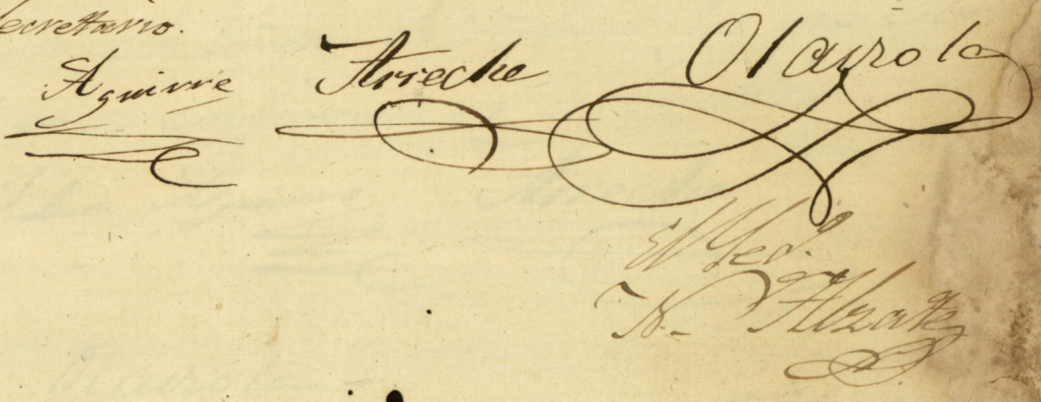 Secrettario.
Aguirre Arreche Olayzola
El Sec.
N. Alzate